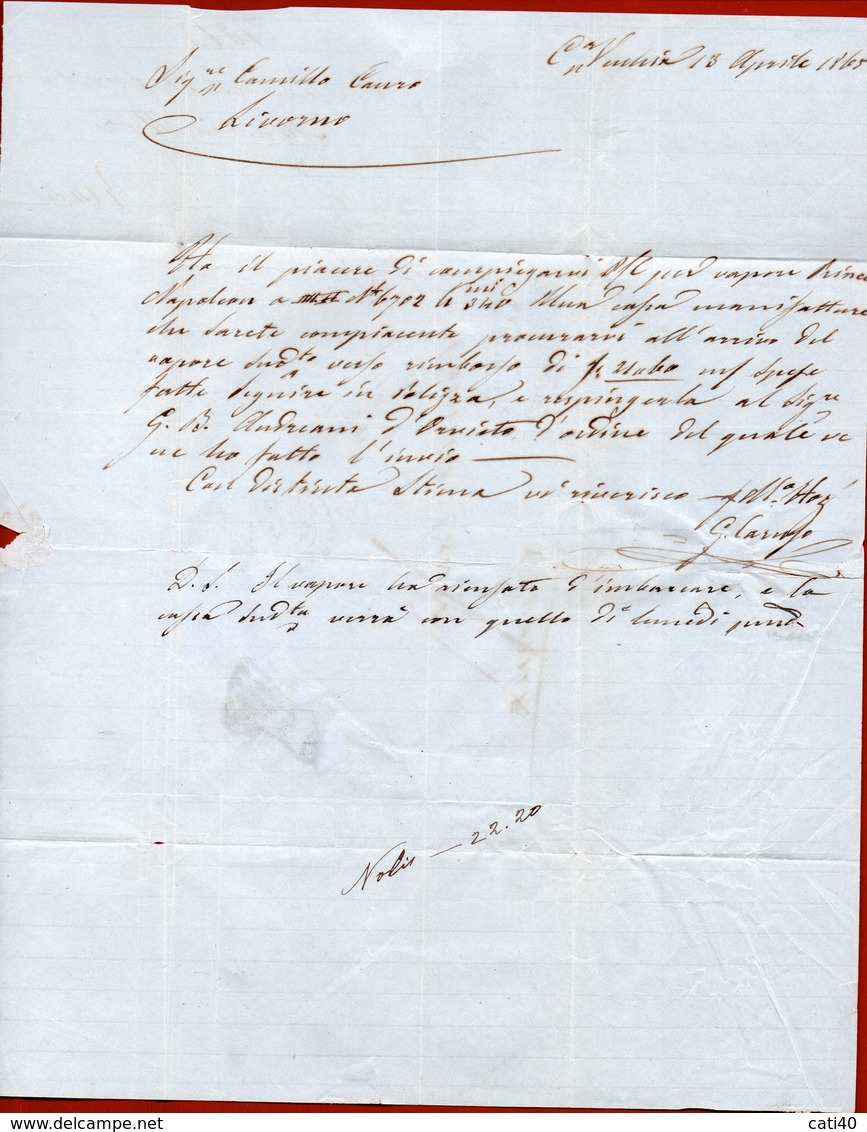 C.ª Vecchia 13 Aprile 186
Sig.re Camillo Cauro
Livorno
Ho il piacere di compiegarvi P/C per vapore Prince
Napoleon a N° 6702 Una cassa manifatture
che sarete compiacente procurarvi all'arrivo del
vapore sud.to verso rimborso di spese
fatte seguire in Polizza, e respingerla al Sig.re
G. B. Andreani d'Orvieto d'ordine del quale ve
ne ho fatto l'invio
Con distinta stima vi riverisco
G. Caruso
P. S. Il vapore ha ricusato d'imbarcare, e la
cassa sud.ta verrà con quello di lunedi
Nolis — 22.20
cati40